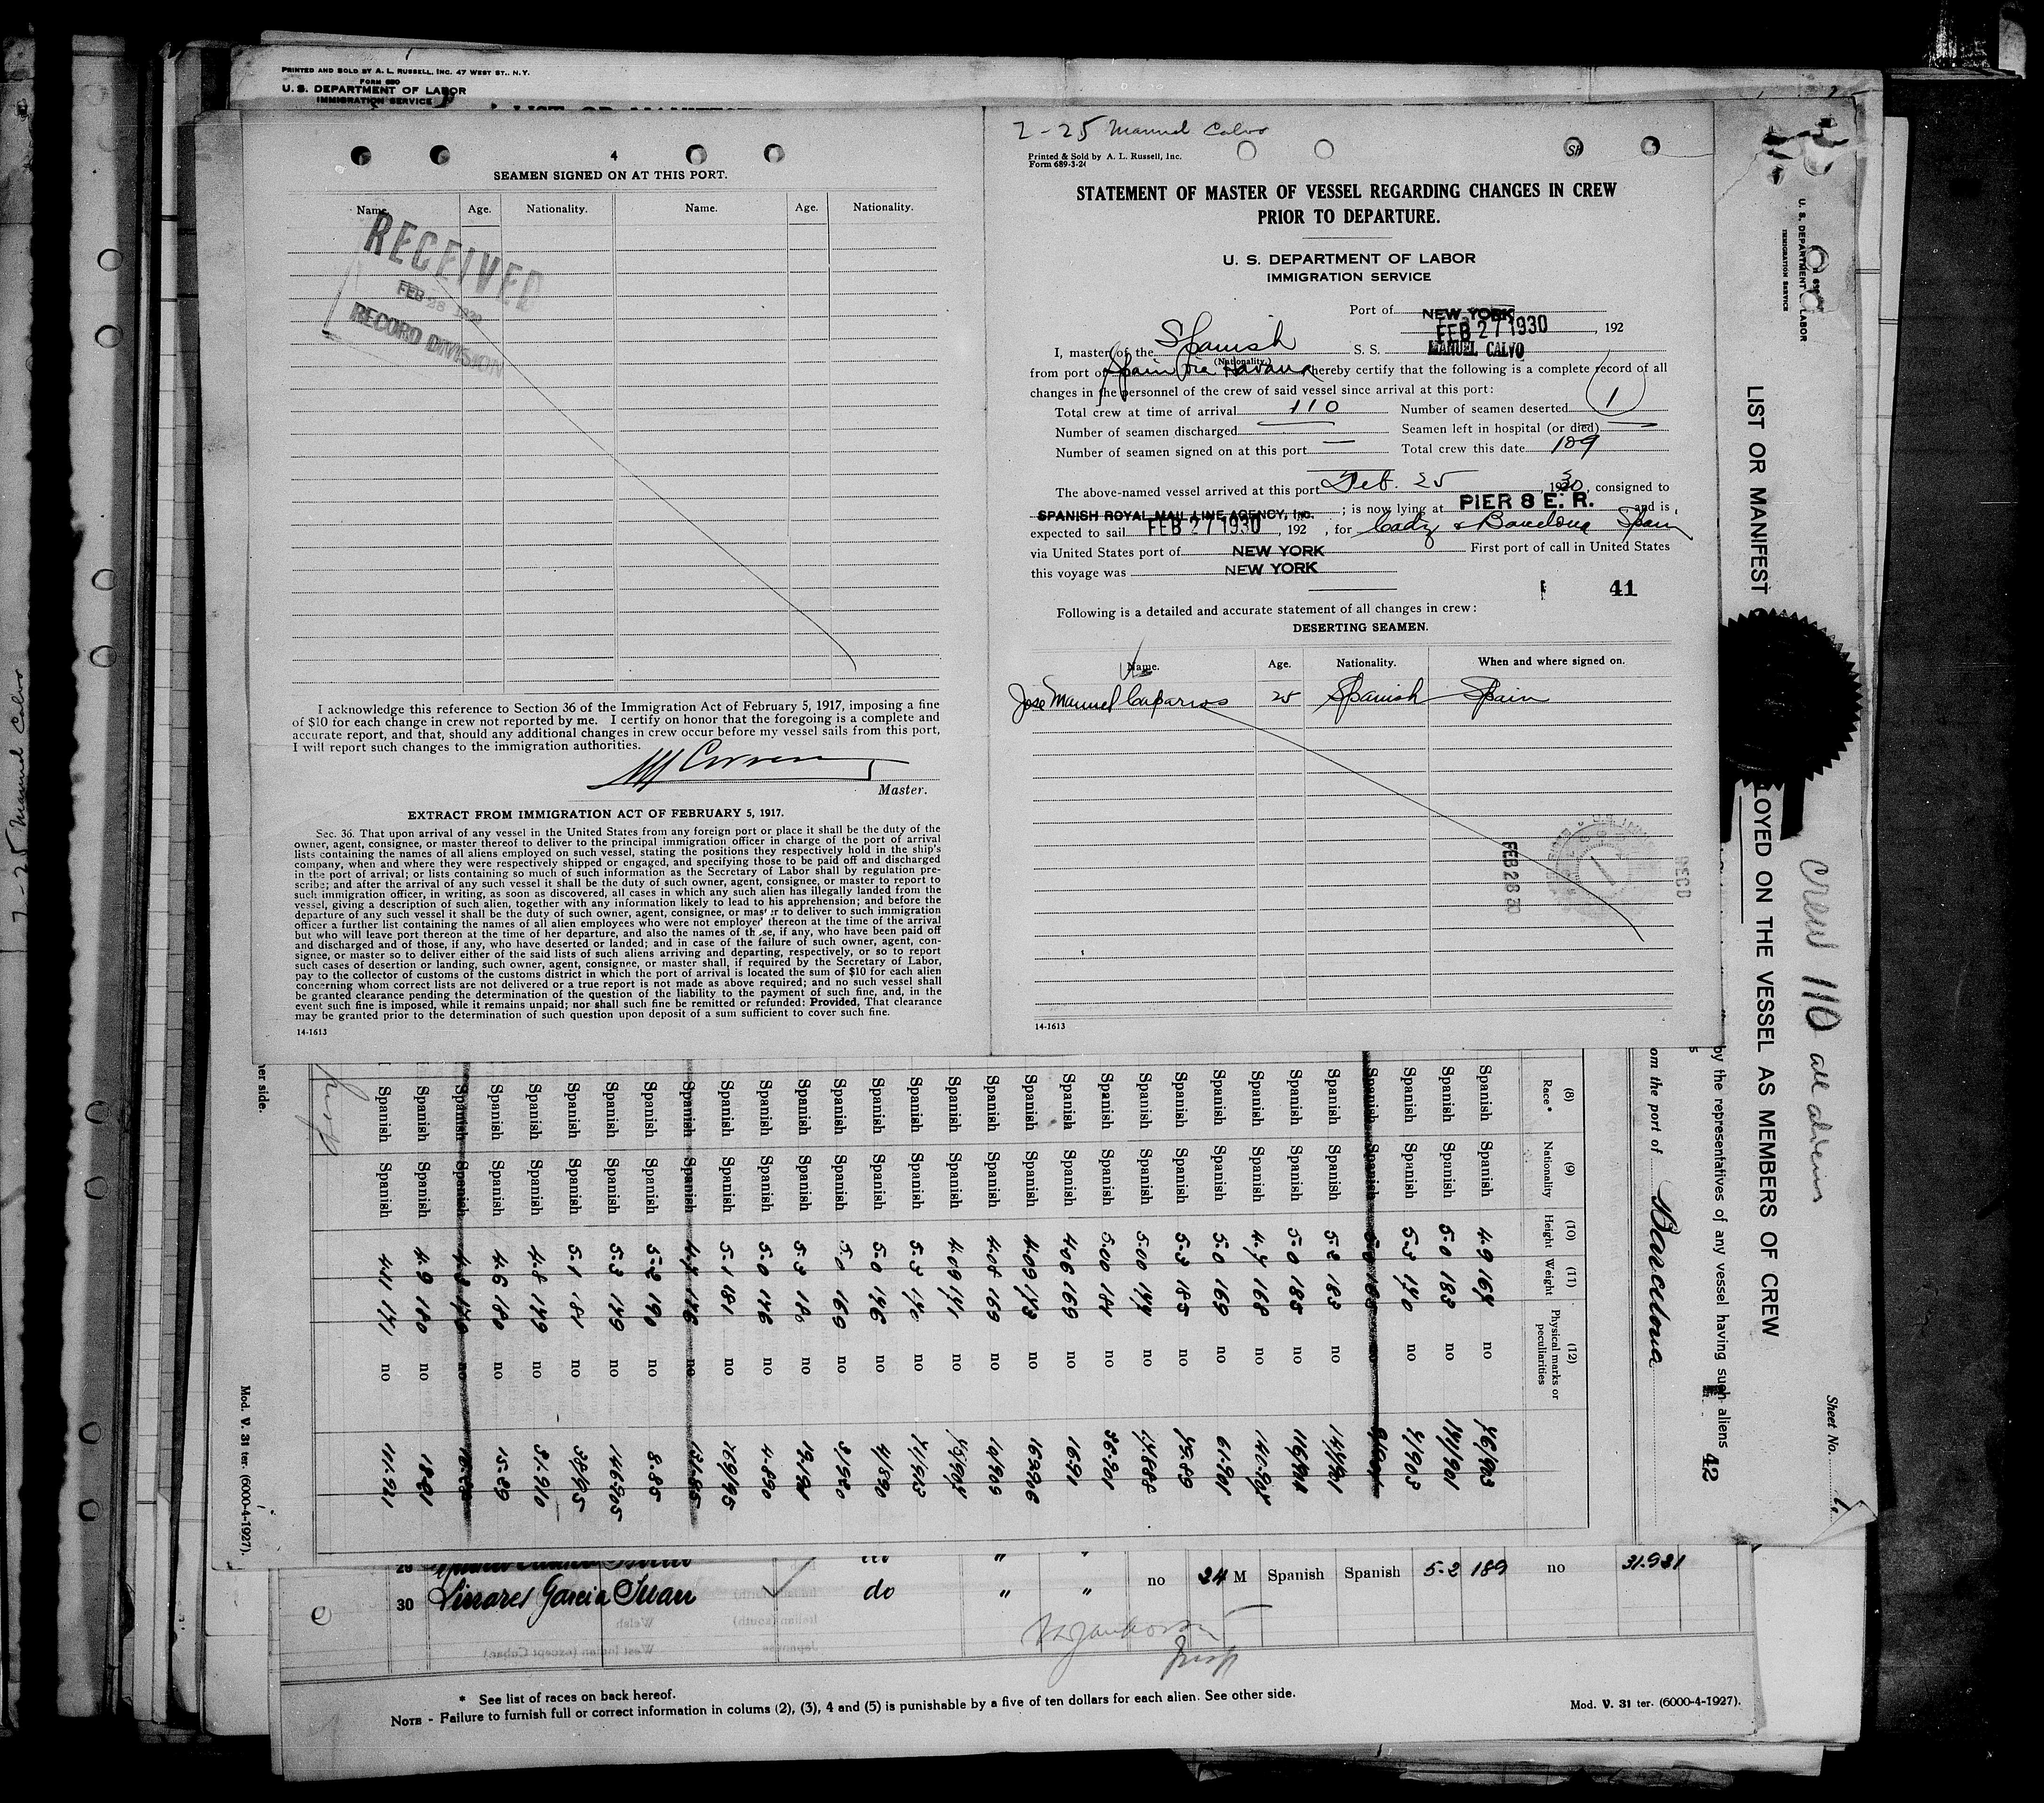 PRINTED AND SOLD BY A. L. RUSSELL, INC. 47 WEST ST., N.Y.
FORM 680
U. S. DEPARTMENT OF LABOR
IMMIGRATION SERVICE
4
SEAMEN SIGNED ON AT THIS PORT.
Name. Age. Nationality. Name. Age. Nationality.
RECEIVED
FEB 28 1930
RECORD DIVISION
I acknowledge this reference to Section 36 of the Immigration Act of February 5, 1917, imposing a fine
of $10 for each change in crew not reported by me. I certify on honor that the foregoing is a complete and
accurate report, and that, should any additional changes in crew occur before my vessel sails from this port,
I will report such changes to the immigration authorities.
Master.
EXTRACT FROM IMMIGRATION ACT OF FEBRUARY 5, 1917.
Sec. 36. That upon arrival of any vessel in the United States from any foreign port or place it shall be the duty of the
owner, agent, consignee, or master thereof to deliver to the principal immigration officer in charge of the port of arrival
lists containing the names of all aliens employed on such vessel, stating the positions they respectively hold in the ship's
company, when and where they were respectively shipped or engaged, and specifying those to be paid off and discharged
in the port of arrival; or lists containing so much of such information as the Secretary of Labor shall by regulation pre-
scribe; and after the arrival of any such vessel it shall be the duty of such owner, agent, consignee, or master to report to
such immigration officer, in writing, as soon as discovered, all cases in which any such alien has illegally landed from the
vessel, giving a description of such alien, together with any information likely to lead to his apprehension; and before the
departure of any such vessel it shall be the duty of such owner, agent, consignee, or master to deliver to such immigration
officer a further list containing the names of all alien employees who were not employed thereon at the time of the arrival
but who will leave port thereon at the time of her departure, and also the names of those, if any, who have been paid off
and discharged and of those, if any, who have deserted or landed; and in case of the failure of such owner, agent, con-
signee, or master so to deliver either of the said lists of such aliens arriving and departing, respectively, or so to report
such cases of desertion or landing, such owner, agent, consignee, or master shall, if required by the Secretary of Labor,
pay to the collector of customs of the customs district in which the port of arrival is located the sum of $10 for each alien
concerning whom correct lists are not delivered or a true report is not made as above required; and no such vessel shall
be granted clearance pending the determination of the question of the liability to the payment of such fine, and, in the
event such fine is imposed, while it remains unpaid; nor shall such fine be remitted or refunded: Provided, That clearance
may be granted prior to the determination of such question upon deposit of a sum sufficient to cover such fine.
14-1613
2-25 Manuel Calvo
Printed & Sold by A. L. Russell, Inc.
Form 689-3-2
STATEMENT OF MASTER OF VESSEL REGARDING CHANGES IN CREW
PRIOR TO DEPARTURE.
U. S. DEPARTMENT OF LABOR
IMMIGRATION SERVICE
Port of NEW YORK
FEB 27 1930, 192
I, master of the Spanish S. S. MANUEL CALVO
(Nationality.)
from port of Spain via Havana hereby certify that the following is a complete record of all
changes in the personnel of the crew of said vessel since arrival at this port:
Total crew at time of arrival 110 Number of seamen deserted 1
Number of seamen discharged Seamen left in hospital (or died)
Number of seamen signed on at this port Total crew this date 109
The above-named vessel arrived at this port Feb. 25, 1930, consigned to
SPANISH ROYAL MAIL LINE AGENCY, Inc.; is now lying at PIER 8 E. R. and is
expected to sail FEB 27 1930, 192 , for Cadiz & Barcelona Spain
via United States port of NEW YORK First port of call in United States
this voyage was NEW YORK
41
Following is a detailed and accurate statement of all changes in crew:
DESERTING SEAMEN.
Name. Age. Nationality. When and where signed on.
Jose Manuel Caparros 25 Spanish Spain
FEB 28 30
RECD
14-1613
U. S. DEPARTMENT OF LABOR
IMMIGRATION SERVICE
LIST OR MANIFEST
LOYED ON THE VESSEL AS MEMBERS OF CREW
Crew 110 all aliens
by the representatives of any vessel having such aliens
om the port of Barcelona
Sheet No. 1.
42
(8) Race* (9) Nationality (10) Height (11) Weight (12) Physical marks or peculiarities
Spanish Spanish 4.9 167 no
Spanish Spanish 5.0 183 no
Spanish Spanish 5.3 170 no
Spanish Spanish
Spanish Spanish 5.2 183 no
Spanish Spanish 5.0 185 no
Spanish Spanish 4.7 168 no
Spanish Spanish 5.0 169 no
Spanish Spanish 5.3 185 no
Spanish Spanish 5.00 177 no
Spanish Spanish 5.00 181 no
Spanish Spanish 4.06 169 no
Spanish Spanish 4.09 173 no
Spanish Spanish 4.08 169 no
Spanish Spanish 4.09 171 no
Spanish Spanish 5.3 170 no
Spanish Spanish 5.0 176 no
Spanish Spanish 5.0 169 no
Spanish Spanish 5.3 18 no
Spanish Spanish 5.0 176 no
Spanish Spanish 5.1 181 no
Spanish Spanish no
Spanish Spanish 5.2 190 no
Spanish Spanish 5.3 179 no
Spanish Spanish 5.1 181 no
Spanish Spanish 4.8 179 no
Spanish Spanish 4.6 180 no
Spanish Spanish no
Spanish Spanish 4.9 180 no
Spanish Spanish 4.11 171 no
her side.
Mod. V. 31 ter. (6000-4-1927).
30 Linares Garcia Juan do " " no 24 M Spanish Spanish 5-2 189 no 31.921
* See list of races on back hereof.
NOTE - Failure to furnish full or correct information in colums (2), (3), 4 and (5) is punishable by a five of ten dollars for each alien. See other side.
Mod. V. 31 ter. (6000-4-1927).
2-25 Manuel Calvo